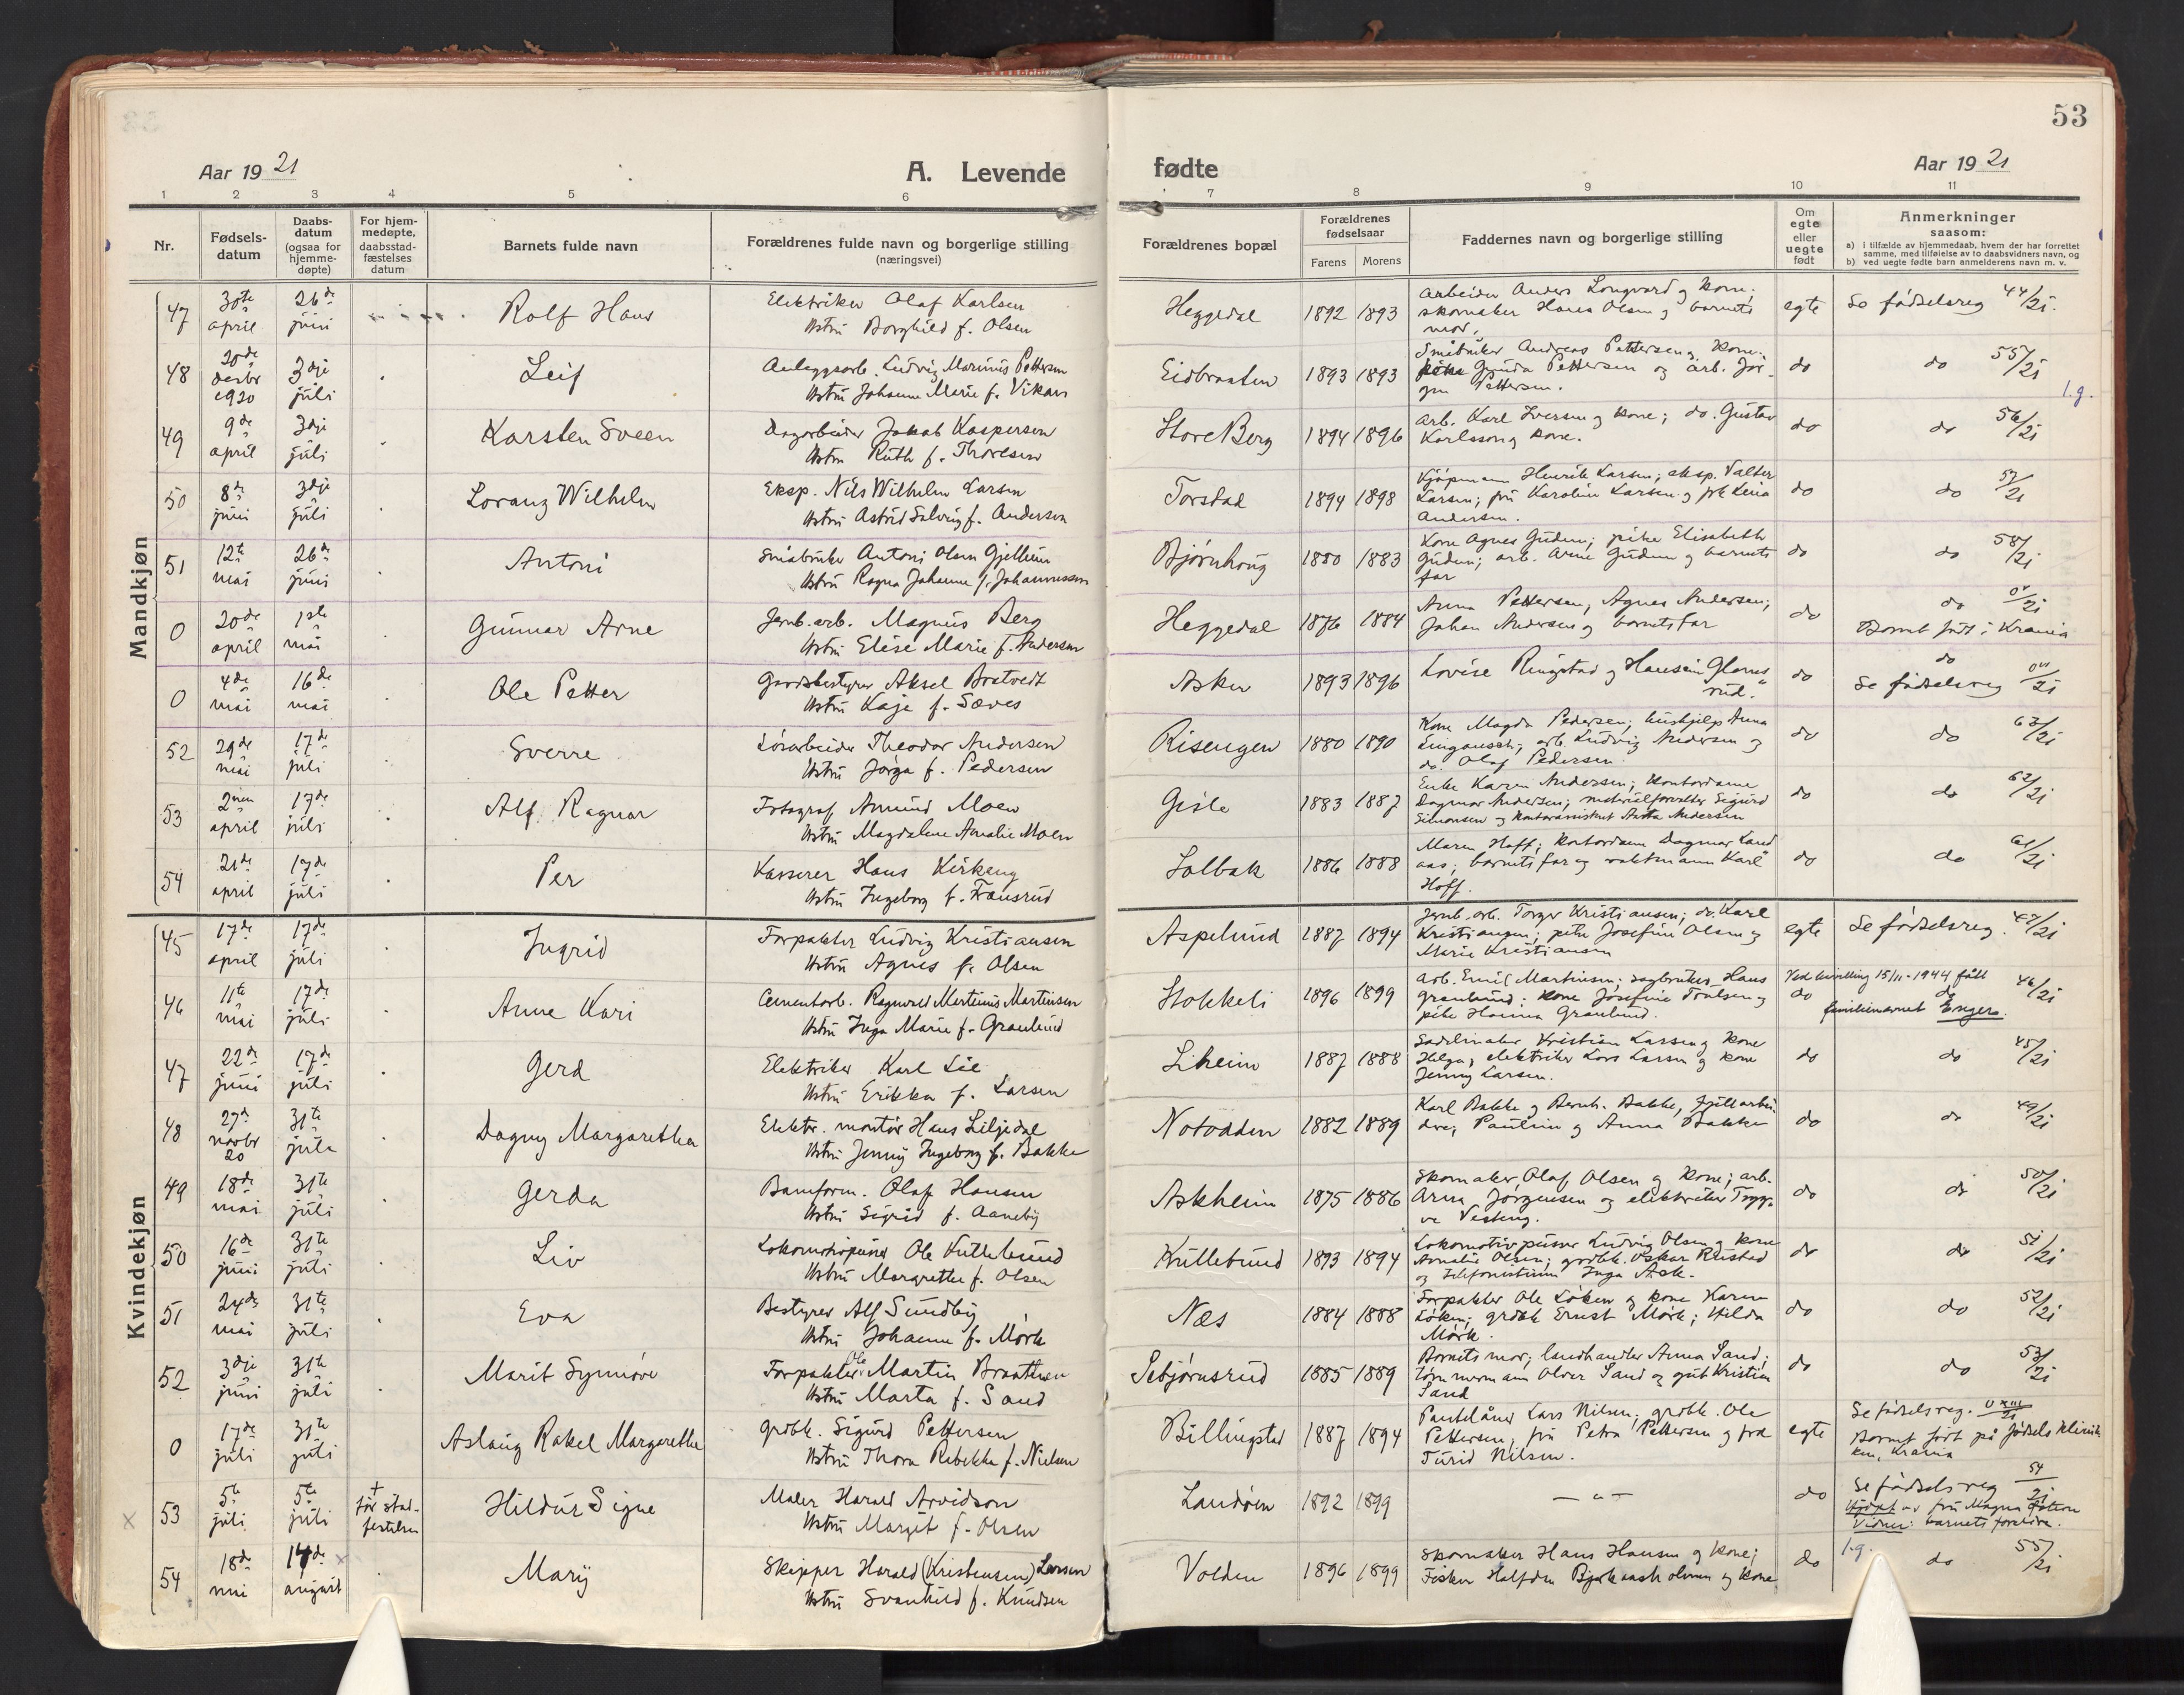 53
Aar 1921
A. Levende
fødte
Aar 1921
1 2 3 4 5 6 7 8 9 10 11
Nr.
Fødsels-
datum
Daabs-
datum
(ogsaa for
hjemme-
døpte)
For hjem-
medøpte,
daabsstad-
fæstelses
datum
Barnets fulde navn
Forældrenes fulde navn og borgerlige stilling
(næringsvei)
Forældrenes bopæl
Forældrenes
fødselsaar
Farens
Morens
Faddernes navn og borgerlige stilling
Om
egte
eller
uegte
født
Anmerkninger
saasom:
a) i tilfælde av hjemmedaab, hvem der har forrettet
samme, med tilføielse av to daabsvidners navn, og
b) ved uegte fødte barn anmelderens navn m. v.
Mandkjøn
47 30te april 26de juni Rolf Hans
Elektriker Olaf Karlsen
Hstru Borghild f. Olsen
Heggedal 1892 1893
Arbeider Anders Longvard og kone;
skomaker Hans Olsen og barnets
mor.
egte Se fødselsreg 44/21.
48 20de desbr 1920 3dje juli Leif
Anlegsarb. Ludvig Marinius Pettersen
Hstru Johanne Marie f. Vikan
Eidbraaten 1893 1893
Småbruker Andreas Pettersen og kone;
Gunda Pettersen og arb. Jør-
gen Pettersen.
do do 55/21
l.g.
49 9de april 3dje juli Karsten Sveen
Dagarbeider Jakob Kaspersen
Hstru Ruth f. Thoresen
Store Berg 1894 1896
Arb. Karl Iversen og kone; do. Gustav
Karlsson og kone.
do do 56/21
50 8de juni 3dje juli Lorang Wilhelm
Eksp. Nils Wilhelm Larsen
Hstru Astrid Solveig f. Andersen
Torstad 1894 1898
Kjøpmann Henrik Larsen; eksp. Valter
Larsen; fru Karoline Larsen og frk Lina
Andersen.
do do 57/21
51 12te mai 26de juni Antoni
Småbruker Antoni Olsen Gjellum
Hstru Ragna Johanne f. Johannessen
Bjørnhaug 1880 1883
Kone Agnes Gudem; pike Elisabeth
Gudem; arb. Arne Gudem og barnets
far
do do 58/21
0 20de april 1ste mai Gunnar Arne
Jernb.arb. Magnus Berg
Hstru Elise Marie f. Andersen
Heggedal 1876 1884
Anna Pettersen, Agnes Andersen;
Johan Andersen og barnets far
do do
Barnet født i Krania
0 4de mai 16de mai Ole Petter
Gaardsbestyrer Aksel Bratvedt
Hstru Kaja f. Sæves
Asker 1893 1896
Lovise Ringstad og Hansein Glomsrud.
do do
Se fødselsreg
52 29de mai 17de juli Sverre
Løsarbeider Theodor Andersen
Hstru Jørga f. Pedersen
Risengen 1880 1890
Kone Magda Pedersen; hushjelp Anna
arb. Ludvig Andersen og
do Olaf Pedersen.
do do 63/21
53 2nen april 17de juli Alf Ragnar
Fotograf Amund Moen
Hstru Magdalene Amalie Moen
Gisle 1883 1887
Enke Karen Andersen; kontordame
Dagmar Andersen; materialforvalter Sigurd
Simonsen og kontorassistent Asta Andersen
do do 62/21
54 21de april 17de juli Per
Kasserer Hans Kirkeng
Hstru Ingeborg f. Fransrud
Solbak 1886 1888
Maren Hoff; kontordame Dagmar Land-
aas; barnets far og vaktmann Karl
Hoff.
do do 61/21
Kvindekjøn
45 17de april 17de juli Ingrid
Forpakter Ludvig Kristiansen
Hstru Agnes f. Olsen
Aspelund 1887 1894
Jernb.arb. Torger Kristiansen; do. Karl
Kristiansen; pike Josefine Olsen og
Marie Kristiansen
egte Se fødselsreg. 47/21
46 11te mai 17de juli Anne Kari
Cementarb. Ragnvald Martinius Martinsen
Hstru Inga Marie f. Granlund
Stokkeli 1896 1899
Arb. Emil Martinsen; Hans
Granlund; kone Josefine Poulsen og
pike Hanna Granlund.
Ved bevilling 15/11-1944 fått
do do 46/21
familienavnet Enger.
47 22de juni 17de juli Gerd
Elektriker Karl Lie
Hstru Erikka f. Larsen
Liheim 1887 1888
Sadelmaker Kristian Larsen og kone
Helga; elektriker Lars Larsen og kone
Jenny Larsen.
do do 45/21
48 27de novbr 20 31te juli Dagny Margaretha
Elektr. montør Hans Liljedal
Hstru Jenny Ingeborg f. Bakke
Notodden 1882 1889
Karl Bakke og Bernh. Bakke,
Pauline og Anna Bakke
do do 49/21
49 18de mai 31te juli Gerda
Baneform. Olaf Hansen
Hstru Sigrid f. Aaneby
Askheim 1875 1886
Skomaker Olaf Olsen og kone; arb.
Arna Jørgensen og elektriker Tryg-
ve Vesteng.
do do 50/21
50 16de juni 31te juli Liv
Lokomotivpusser Ole Kullebund
Hstru Margrethe f. Olsen
Kullebund 1893 1894
Lokomotivpusser Ludvig Olsen og kone
Amalie Olsen; grdbk. Oskar Ristad
og telefonistinne Inga Ask.
do do 51/21
51 24de mai 31te juli Eva
Bestyrer Alf Sundby
Hstru Johanne f. Mørk
Næs 1884 1888
Forpakter Ole Løken og kone Karen
Løken; grdbk Ernst Mørk; Hilda
Mørk.
do do 52/21
52 3dje juni 31te juli Marit Synnøve
Forpakter Ole Martin Braathen
Hstru Marta f. Sand
Sebjørnsrud 1885 1889
Barnets mor; landhandler Anna Sand;
tømmermann Olver Sand og gut Kristian
Sand
do do 53/21
0 17de juli 31te juli Aslaug Rakel Margarethe
grdbk. Sigurd Pettersen
Hstru Thora Rebekka f. Nielsen
Billingstad 1887 1894
Pantelåner Lars Nilsen; grdbk. Ole
Pettersen; fru Petra Pettersen og frk
Turid Nilsen.
egte Se fødselsreg.
Barnet født på fødselsklinik-
ken, Krania
x 53 5te juli 5te juli + før stad-
festelsen Hildur Signe
Maler Harald Arvidson
Hstru Margit f. Olsen
Landøen 1892 1899
— " —
do Se fødselsreg 54/21
Hjdpt av fru Magna
Vidner: barnets foreldre.
54 18de mai 14de august x Mary
Skipper Harald (Kristensen) Larsen
Hstru Svanhild f. Knudsen
Volden 1896 1899
Skomaker Hans Hansen og kone;
Fisker Halfdan og kone
do l.g. do 55/21